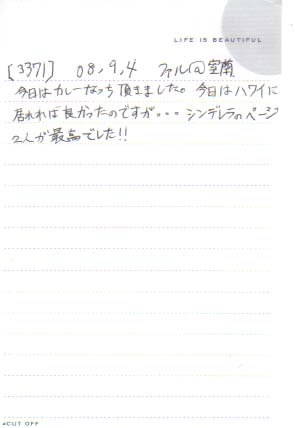 LIFE IS BEAUTIFUL
[3371] 08.9.4 アル@室蘭
今日はカレーなっち頂きました。今日はハワイに
居れれば良かったのですが・・・シンデレラのページ
2人が最高でした!!
CUT OFF